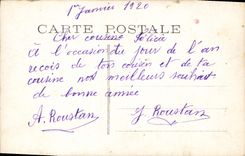 1er Janvier 1920
CARTE POSTALE
Cher cousine Félicie
à l'occasion du jour de l'an
recois de ton cousin et de ta
cousine nos meilleurs souhait
de bonne année
A. Roustan J. Roustan